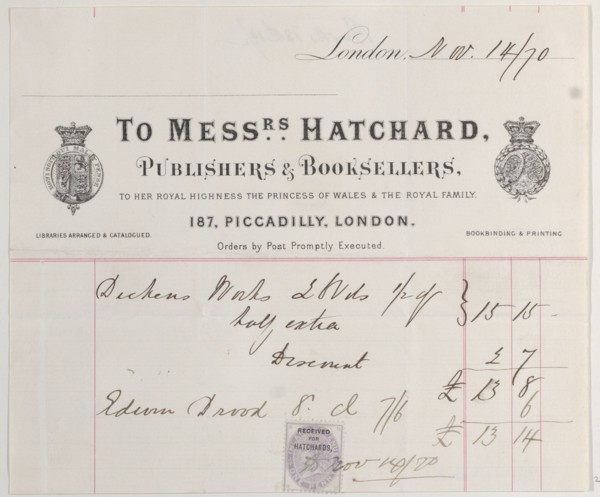 London, Nov. 14/70
TO MESSRS HATCHARD,
PUBLISHERS & BOOKSELLERS,
TO HER ROYAL HIGHNESS THE PRINCESS OF WALES & THE ROYAL FAMILY.
187, PICCADILLY, LONDON.
LIBRARIES ARRANGED & CATALOGUED.
BOOKBINDING & PRINTING
Orders by Post Promptly Executed.
Dickens Works Vols 1/2 cf 15 15
half extra
Discount 2 7
£ 13 8
Edwin Drood 8. cl 7/6 6
£ 13 14
RECEIVED
FOR
HATCHARDS,
Nov 14/70